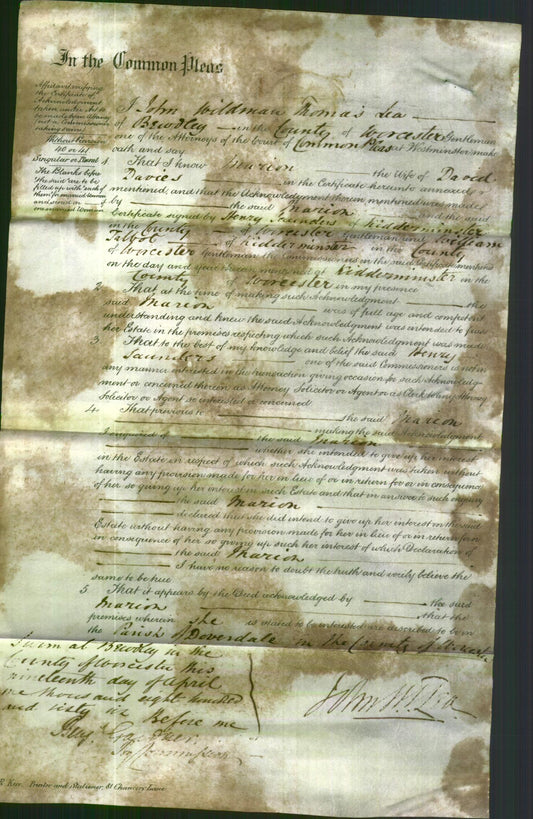 In the Common Pleas
Affidavit verifying
the Certificate of
Acknowledgment
taken under Act to
be made by an Attorney
not a Commissioner
taking same
Singular or Plural
The Blanks before
the said are to be
filled up with names of
the married Woman
and send in
married Woman
I John Wildman Thomas Lea
of Bewdley in the County of Worcester Gentleman
one of the Attorneys of the Court of Common Pleas at Westminster make
oath and say
1 That I know Marion the Wife of David
Davies in the Certificate hereunto annexed
mentioned, and that the Acknowledgment therein mentioned was made
by the said Marion and the said
Certificate signed by Henry Saunders of Kidderminster
in the County of Worcester Gentleman and William
Talbot of Kidderminster in the County
of Worcester Gentleman the Commissioners in the said Certificate mentioned
on the day and year therein mentioned at Kidderminster in the
County of Worcester in my presence
2 That at the time of making such Acknowledgment the
said Marion was of full age and competent
understanding and knew the said Acknowledgment was intended to pass
her Estate in the premises respecting which such Acknowledgment was made
3 That to the best of my knowledge and belief the said Henry
Saunders one of the said Commissioners is not in
any manner interested in the transaction giving occasion for such Acknowledg-
ment or concerned therein as Attorney Solicitor or Agent or as Clerk to any Attorney
Solicitor or Agent so interested or concerned
4 That previous to the said Marion
making the said Acknowledgment
I inquired of the said Marion
whether she intended to give up her interest
in the Estate in respect of which such Acknowledgment was taken without
having any provision made for her in lieu of or in return for or in consequence
of her so giving up her interest in such Estate and that in answer to such inquiry
the said Marion
declared that she did intend to give up her interest in the said
Estate without having any provision made for her in lieu of or in return for or
in consequence of her so giving up such her interest of which Declaration of
the said Marion
I have no reason to doubt the truth and verily believe the
same to be true
5 That it appears by the Deed acknowledged by the said
Marion that the
premises wherein she is stated to be interested are described to be in
the Parish of Doverdale in the County of Worcester
Sworn at Bewdley in the
County of Worcester this
nineteenth day of April
one thousand eight hundred
and sixty six Before me
John W. T. Lea
R. Kerr Printer and Stationer, 81 Chancery Lane